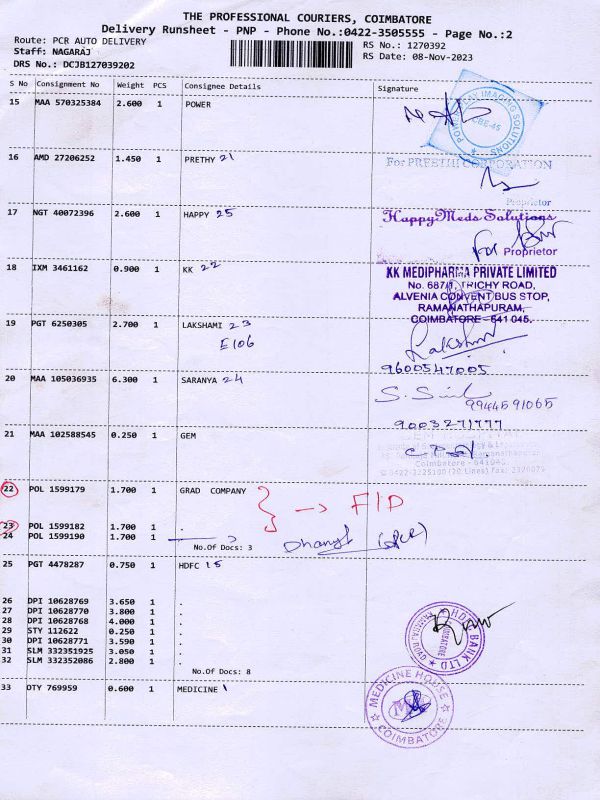 THE PROFESSIONAL COURIERS, COIMBATORE
Delivery Runsheet - PNP - Phone No.:0422-3505555 - Page No.:2
Route: PCR AUTO DELIVERY
RS No.: 1270392
Staff: NAGARAJ
RS Date: 08-Nov-2023
DRS No.: DCJB127039202
S No Consignment No Weight PCS Consignee Details Signature
15 MAA 570325384 2.600 1 POWER
IMAGING SOLUTIONS
CBE-45
16 AMD 27206252 1.450 1 PRETHY 21
For PREETHI CORPORATION
Proprietor
17 NGT 40072396 2.600 1 HAPPY 25
HappyMeds Solutions
For
Proprietor
18 IXM 3461162 0.900 1 KK 22
KK MEDIPHARMA PRIVATE LIMITED
No. 687/1, TRICHY ROAD,
ALVENIA CONVENT BUS STOP,
RAMANATHAPURAM,
COIMBATORE-641 045.
19 PGT 6250305 2.700 1 LAKSHAMI 23
E106
Lakshmi
9600547005
20 MAA 105036935 6.300 1 SARANYA 24
9944591065
9003271777
21 MAA 102588545 0.250 1 GEM
Coimbatore - 641045.
22 POL 1599179 1.700 1 GRAD COMPANY
→ F/D
23 POL 1599182 1.700 1 .
24 POL 1599190 1.700 1
No.Of Docs: 3
25 PGT 4478287 0.750 1 HDFC 15
26 DPI 10628769 3.650 1 .
27 DPI 10628770 3.800 1 .
28 DPI 10628768 4.000 1 .
29 STY 112622 0.250 1 .
30 DPI 10628771 3.590 1 .
31 SLM 332351925 3.050 1 .
32 SLM 332352086 2.800 1 .
HDFC BANK LTD
COIMBATORE
No.Of Docs: 8
33 OTY 769959 0.600 1 MEDICINE 1
MEDICINE HOUSE
COIMBATORE